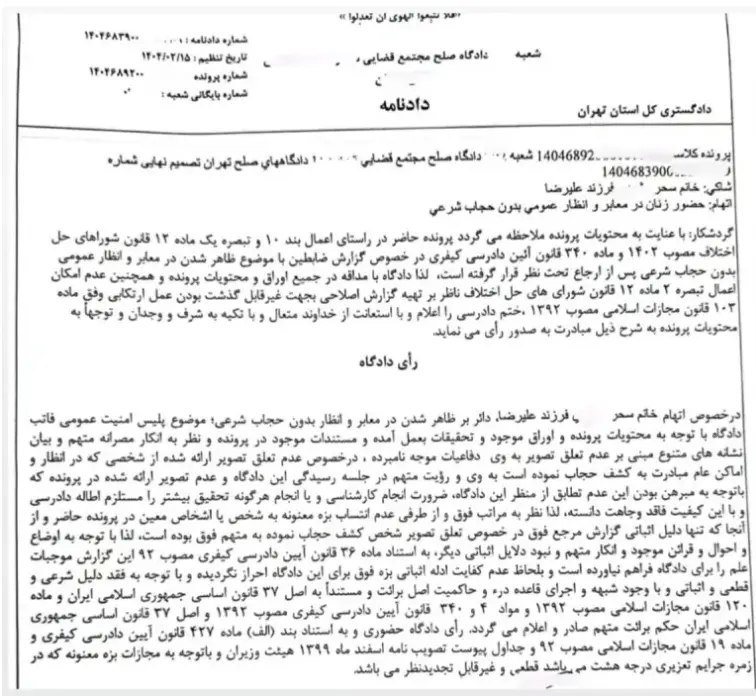 «فلا تتبعوا الهوی ان تعدلوا»
شماره دادنامه : ۱۴۰۴۶۸۳۹۰۰
تاریخ تنظیم : ۱۴۰۴/۰۲/۱۵
شماره پرونده : ۱۴۰۴۶۸۹۲۰۰
شماره بایگانی شعبه :
شعبه دادگاه صلح مجتمع قضایی
دادنامه
دادگستری کل استان تهران
پرونده کلاسه 14046892 شعبه دادگاه صلح مجتمع قضایی دادگاههای صلح تهران تصمیم نهایی شماره
14046839000
شاکی: خانم سحر فرزند علیرضا
اتهام: حضور زنان در معابر و انظار عمومی بدون حجاب شرعی
گردشکار: با عنایت به محتویات پرونده ملاحظه می گردد پرونده حاضر در راستای اعمال بند ۱۰ و تبصره یک ماده ۱۲ قانون شوراهای حل
اختلاف مصوب ۱۴۰۲ و ماده ۳۴۰ قانون آئین دادرسی کیفری در خصوص گزارش ضابطین با موضوع ظاهر شدن در معابر و انظار عمومی
بدون حجاب شرعی پس از ارجاع تحت نظر قرار گرفته است، لذا دادگاه با مداقه در جمیع اوراق و محتویات پرونده و همچنین عدم امکان
اعمال تبصره ۲ ماده ۱۲ قانون شورای های حل اختلاف ناظر بر تهیه گزارش اصلاحی بجهت غیرقابل گذشت بودن عمل ارتکابی وفق ماده
۱۰۳ قانون مجازات اسلامی مصوب ۱۳۹۲ ،ختم دادرسی را اعلام و با استعانت از خداوند متعال و با تکیه به شرف و وجدان و توجهاً به
محتویات پرونده به شرح ذیل مبادرت به صدور رأی می نماید.
رأی دادگاه
درخصوص اتهام خانم سحر فرزند علیرضا، دائر بر ظاهر شدن در معابر و انظار بدون حجاب شرعی؛ موضوع پلیس امنیت عمومی فاتب
دادگاه با توجه به محتویات پرونده و اوراق موجود و تحقیقات بعمل آمده و مستندات موجود در پرونده و نظر به انکار مصرانه متهم و بیان
نشانه های متنوع مبنی بر عدم تعلق تصویر به وی دفاعیات موجه نامبرده ، درخصوص عدم تعلق تصویر ارائه شده از شخصی که در انظار و
اماکن عام مبادرت به کشف حجاب نموده است به وی و رؤیت متهم در جلسه رسیدگی این دادگاه و عدم تصویر ارائه شده در پرونده که
باتوجه به مبرهن بودن این عدم تطابق از منظر این دادگاه، ضرورت انجام کارشناسی و یا انجام هرگونه تحقیق بیشتر را مستلزم اطاله دادرسی
و با این کیفیت فاقد وجاهت دانسته، لذا نظر به مراتب فوق و از طرفی عدم انتساب بزه معنونه به شخص یا اشخاص معین در پرونده حاضر و از
آنجا که تنها دلیل اثباتی گزارش مرجع فوق در خصوص تعلق تصویر شخص کشف حجاب نموده به متهم فوق بوده است، لذا با توجه به اوضاع
و احوال و قرائن موجود و انکار متهم و نبود دلایل اثباتی دیگر، به استناد ماده ۳۶ قانون آیین دادرسی کیفری مصوب ۹۲ این گزارش موجبات
علم را برای دادگاه فراهم نیاورده است و بلحاظ عدم کفایت ادله اثباتی بزه فوق برای این دادگاه احراز نگردیده و با توجه به فقد دلیل شرعی و
قطعی و اثباتی و با وجود شبهه و اجرای قاعده درء و حاکمیت اصل برائت و مستنداً به اصل ۳۷ قانون اساسی جمهوری اسلامی ایران و ماده
۱۲۰ قانون مجازات اسلامی مصوب ۱۳۹۲ و مواد ۴ و ۳۴۰ قانون آیین دادرسی کیفری مصوب ۱۳۹۲ و اصل ۳۷ قانون اساسی جمهوری
اسلامی ایران حکم برائت متهم صادر و اعلام می گردد. رأی دادگاه حضوری و به استناد بند (الف) ماده ۴۲۷ قانون آیین دادرسی کیفری و
ماده ۱۹ قانون مجازات اسلامی مصوب ۹۲ و جداول پیوست تصویب نامه اسفند ماه ۱۳۹۹ هیئت وزیران و باتوجه به مجازات بزه معنونه که در
زمره جرایم تعزیری درجه هشت می باشد قطعی و غیرقابل تجدیدنظر می باشد.